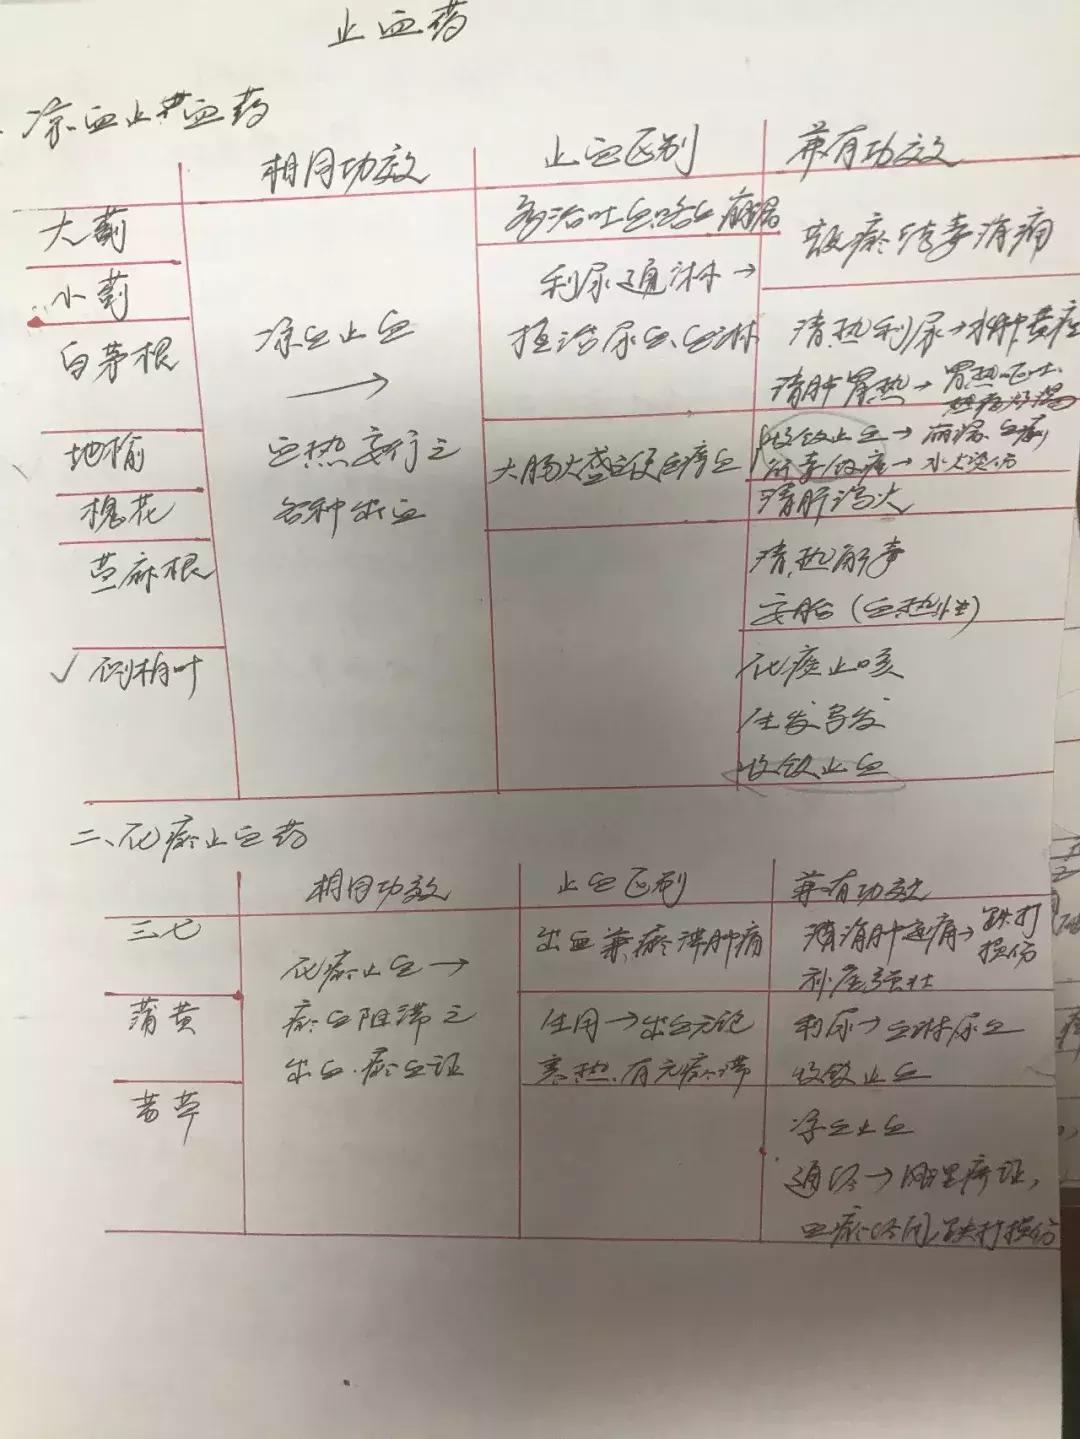 止血药
凉血止血药
相同功效 止血区别 兼有功效
大蓟 多治吐血咯血崩漏 散瘀解毒消痈
小蓟 利尿通淋→
白茅根 凉血止血 擅治尿血、血淋 清热利尿→水肿黄疸
→ 清肺胃热→胃热呕吐
地榆 血热妄行之 大肠火盛之便血痔血 收敛止血→崩漏、血痢
解毒敛疮→水火烫伤
槐花 各种出血 清肝泻火
苎麻根 清热解毒
安胎(血热性)
✓侧柏叶 化痰止咳
生发乌发
收敛止血
二、化瘀止血药
相同功效 止血区别 兼有功效
三七 化瘀止血→ 出血兼瘀滞肿痛 消肿定痛→跌打
损伤
补虚强壮
蒲黄 瘀血阻滞之 生用→出血无论 利尿→血淋尿血
出血、瘀血证 寒热、有无瘀滞 收敛止血
茜草 凉血止血
通经→风湿痹证,
血瘀经闭、跌打损伤